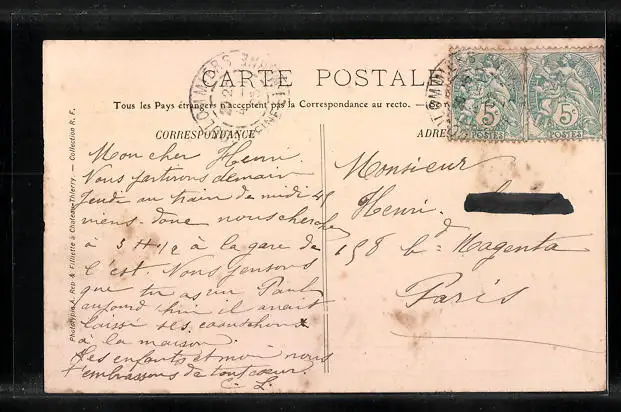 CARTE POSTALE
Tous les Pays étrangers n'acceptent pas la Correspondance au recto. —
CORRESPONDANCE
ADRES
COULOMMIERS
5c
POSTES
5c
POSTES
Mon cher Henri.
Nous partirons demain
jeudi au train de midi 45
viens donc nous chercher
à 3 H 1/2 à la gare de
l'est. Nous pensons
que tu as vu Paul
aujourd'hui il avait
laissé ses caoutchoucs
à la maison.
Les enfants et moi nous
t'embrassons de tout cœur.
C. L.
Monsieur
Henri.
158 bd Magenta
Paris
Phototypie A. Rep. & Filliette à Chateau-Thierry. — Collection R. F.